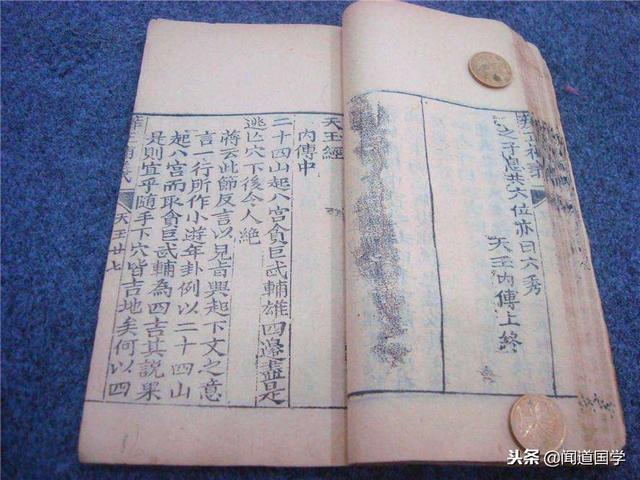 之子息共六位亦曰六秀
天玉內傳上終
天玉經
內傳中
二十四山起八宮貪巨武輔雄四邊盡是
逃亡穴下後令人絶
蔣云此節反言以見音興起下文之意
言一行所作小遊年卦例以二十四山
起八宮而取貪巨武輔為四吉其說果
是則宜乎隨手下穴皆吉地矣何以四
天玉廿七
头条 @闻道国学